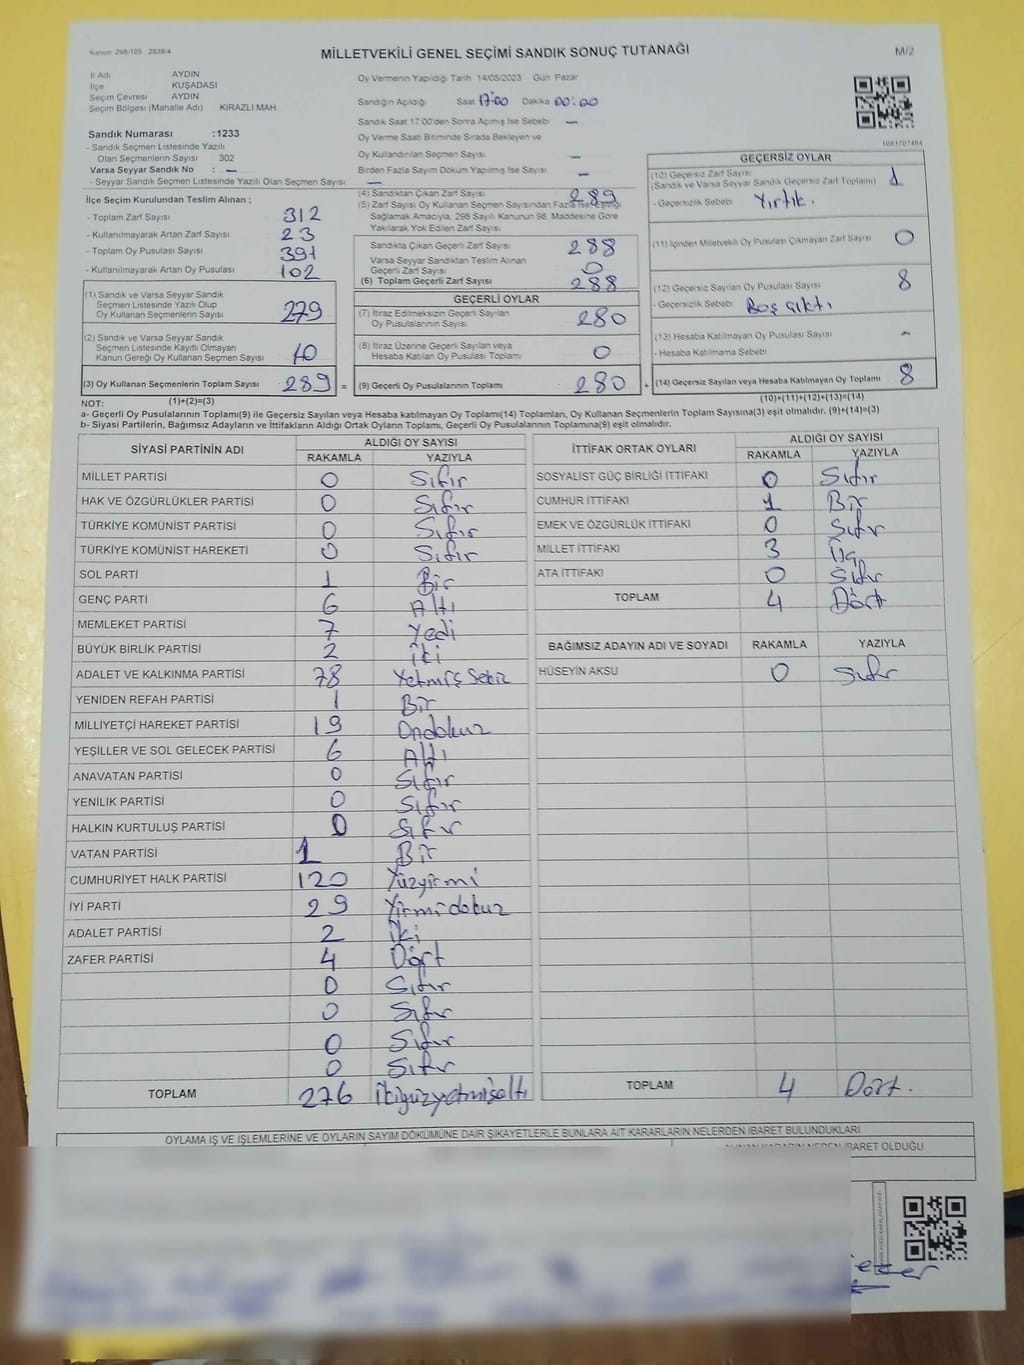 Kanun: 298/105 2839/4
MİLLETVEKİLİ GENEL SEÇİMİ SANDIK SONUÇ TUTANAĞI
M/2
İl Adı AYDIN
İlçe KUŞADASI
Seçim Çevresi AYDIN
Seçim Bölgesi (Mahalle Adı) KİRAZLI MAH.
Sandık Numarası :1233
- Sandık Seçmen Listesinde Yazılı
Olan Seçmenlerin Sayısı 302
Varsa Seyyar Sandık No : -
- Seyyar Sandık Seçmen Listesinde Yazılı Olan Seçmen Sayısı : -
İlçe Seçim Kurulundan Teslim Alınan ;
- Toplam Zarf Sayısı 312
- Kullanılmayarak Artan Zarf Sayısı 23
- Toplam Oy Pusulası Sayısı 391
- Kullanılmayarak Artan Oy Pusulası 102
(1) Sandık ve Varsa Seyyar Sandık
Seçmen Listesinde Yazılı Olup
Oy Kullanan Seçmenlerin Sayısı 279
(2) Sandık ve Varsa Seyyar Sandık
Seçmen Listesinde Kayıtlı Olmayan
Kanun Gereği Oy Kullanan Seçmen Sayısı 10
(3) Oy Kullanan Seçmenlerin Toplam Sayısı 289 =
Oy Vermenin Yapıldığı Tarih 14/05/2023 Gün Pazar
Sandığın Açıldığı Saat 17:00 Dakika 00:00
Sandık Saat 17:00'den Sonra Açılmış İse Sebebi -
Oy Verme Saati Bitiminde Sırada Bekleyen ve
Oy Kullandırılan Seçmen Sayısı -
Birden Fazla Sayım Döküm Yapılmış İse Sayısı -
(4) Sandıktan Çıkan Zarf Sayısı 289
(5) Zarf Sayısı Oy Kullanan Seçmen Sayısından Fazla İse Eşitliği
Sağlamak Amacıyla, 298 Sayılı Kanunun 98. Maddesine Göre
Yakılarak Yok Edilen Zarf Sayısı
Sandıkta Çıkan Geçerli Zarf Sayısı 288
Varsa Seyyar Sandıktan Teslim Alınan
Geçerli Zarf Sayısı 0
(6) Toplam Geçerli Zarf Sayısı 288
GEÇERLİ OYLAR
(7) İtiraz Edilmeksizin Geçerli Sayılan
Oy Pusulalarının Sayısı 280
(8) İtiraz Üzerine Geçerli Sayılan veya
Hesaba Katılan Oy Pusulası Toplamı 0
(9) Geçerli Oy Pusulalarının Toplamı 280 +
1083707484
GEÇERSİZ OYLAR
(10) Geçersiz Zarf Sayısı
(Sandık ve Varsa Seyyar Sandık Geçersiz Zarf Toplamı) 1
- Geçersizlik Sebebi Yırtık.
(11) İçinden Milletvekili Oy Pusulası Çıkmayan Zarf Sayısı 0
(12) Geçersiz Sayılan Oy Pusulası Sayısı 8
- Geçersizlik Sebebi Boş çıktı
(13) Hesaba Katılmayan Oy Pusulası Sayısı -
- Hesaba Katılmama Sebebi
(14) Geçersiz Sayılan veya Hesaba Katılmayan Oy Toplamı 8
NOT: (1)+(2)=(3) (10)+(11)+(12)+(13)=(14)
a- Geçerli Oy Pusulalarının Toplamı(9) ile Geçersiz Sayılan veya Hesaba katılmayan Oy Toplamı(14) Toplamları, Oy Kullanan Seçmenlerin Toplam Sayısına(3) eşit olmalıdır. (9)+(14)=(3)
b- Siyasi Partilerin, Bağımsız Adayların ve İttifakların Aldığı Ortak Oyların Toplamı, Geçerli Oy Pusulalarının Toplamına(9) eşit olmalıdır.
SİYASİ PARTİNİN ADI ALDIĞI OY SAYISI
RAKAMLA YAZIYLA
MİLLET PARTİSİ 0 Sıfır
HAK VE ÖZGÜRLÜKLER PARTİSİ 0 Sıfır
TÜRKİYE KOMÜNİST PARTİSİ 0 Sıfır
TÜRKİYE KOMÜNİST HAREKETİ 0 Sıfır
SOL PARTİ 1 Bir
GENÇ PARTİ 6 Altı
MEMLEKET PARTİSİ 7 Yedi
BÜYÜK BİRLİK PARTİSİ 2 İki
ADALET VE KALKINMA PARTİSİ 78 Yetmiş Sekiz
YENİDEN REFAH PARTİSİ 1 Bir
MİLLİYETÇİ HAREKET PARTİSİ 19 Ondokuz
YEŞİLLER VE SOL GELECEK PARTİSİ 6 Altı
ANAVATAN PARTİSİ 0 Sıfır
YENİLİK PARTİSİ 0 Sıfır
HALKIN KURTULUŞ PARTİSİ 0 Sıfır
VATAN PARTİSİ 1 Bir
CUMHURİYET HALK PARTİSİ 120 Yüzyirmi
İYİ PARTİ 29 Yirmidokuz
ADALET PARTİSİ 2 İki
ZAFER PARTİSİ 4 Dört
0 Sıfır
0 Sıfır
0 Sıfır
0 Sıfır
TOPLAM 276 İkiyüzyetmişaltı
İTTİFAK ORTAK OYLARI ALDIĞI OY SAYISI
RAKAMLA YAZIYLA
SOSYALİST GÜÇ BİRLİĞİ İTTİFAKI 0 Sıfır
CUMHUR İTTİFAKI 1 Bir
EMEK VE ÖZGÜRLÜK İTTİFAKI 0 Sıfır
MİLLET İTTİFAKI 3 Üç
ATA İTTİFAKI 0 Sıfır
TOPLAM 4 Dört
BAĞIMSIZ ADAYIN ADI VE SOYADI RAKAMLA YAZIYLA
HÜSEYİN AKSU 0 Sıfır
TOPLAM 4 Dört.
OYLAMA İŞ VE İŞLEMLERİNE VE OYLARIN SAYIM DÖKÜMÜNE DAİR ŞİKAYETLERLE BUNLARA AİT KARARLARIN NELERDEN İBARET BULUNDUKLARI
İBARET OLDUĞU